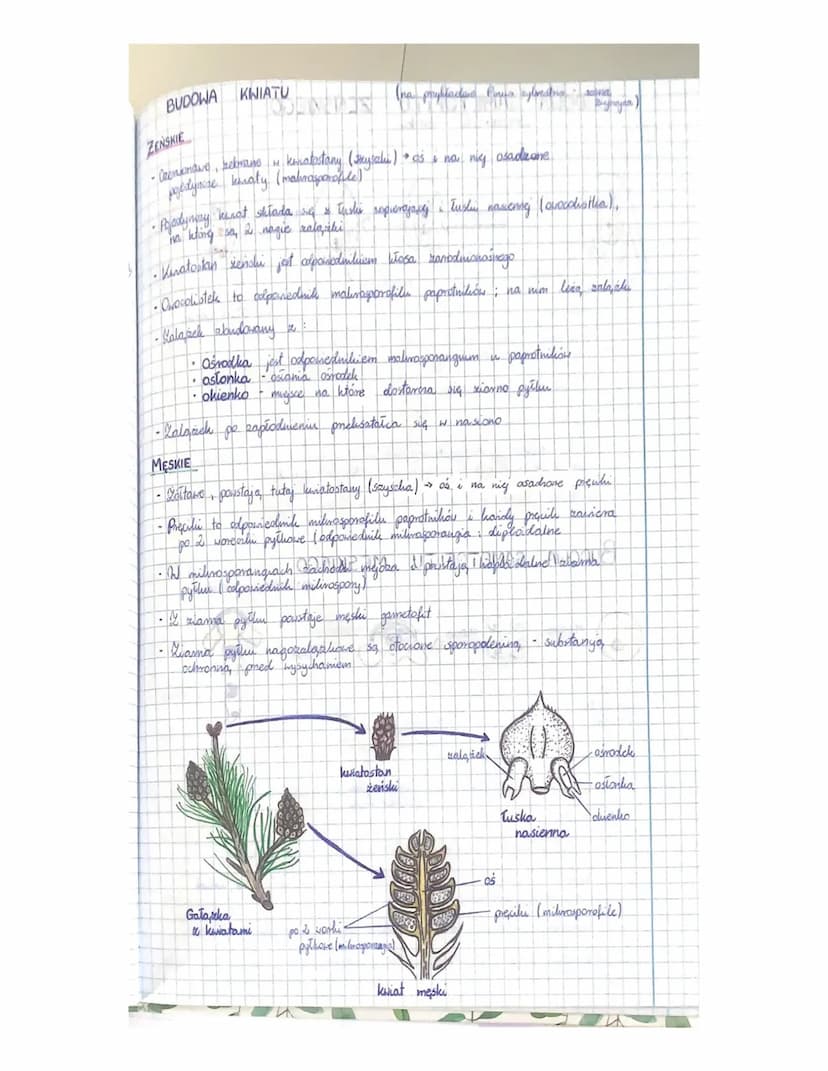 BUDOWA KWIATU (na przykładzie Pinus sylvestris - sosna zwyczajna)
ŻEŃSKIE
- Czerwonawe, zebrane w kwiatostany (szyszki) • oś i na niej osadzone
pojedyncze kwiaty (makrosporofile)
- Pojedynczy kwiat składa się z łuski wspierającej i łuski nasiennej (owocolistka),
na której są 2 nagie zalążki
- Kwiatostan żeński jest odpowiednikiem kłosa zarodnionośnego
- Owocolistek to odpowiednik makrosporofilu paprotników ; na nim leżą zalążki
- Zalążek zbudowany z :
• Ośrodka jest odpowiednikiem makrosporangium u paprotników
• osłonka - osłania ośrodek
• okienko - miejsce na które dostarcza się ziarno pyłku
- Zalążek po zapłodnieniu przekształca się w nasiono
MĘSKIE
- Żółtawe, powstają tutaj kwiatostany (szyszka) → oś i na niej osadzone pręciki
- Pręciki to odpowiednik mikrosporofilu paprotników i każdy pręcik zawiera
po 2 woreczki pyłkowe (odpowiednik mikrosporangia ; diploidalne
- W mikrosporangiach zachodzi mejoza i powstają haploidalne ziarna
pyłku (odpowiednik mikrospory)
- Z ziarna pyłku powstaje męski gametofit
- Ziarna pyłku nagozalążkowe są otoczone sporopoleniną - substancją
ochronną przed wysychaniem
kwiatostan
żeński
zalążek
ośrodek
osłonka
łuska
nasienna
oś
Gałązka
z kwiatami
po 2 worki
pyłkowe (mikrosporangia)
pręciki (mikrosporofile)
kwiat męski